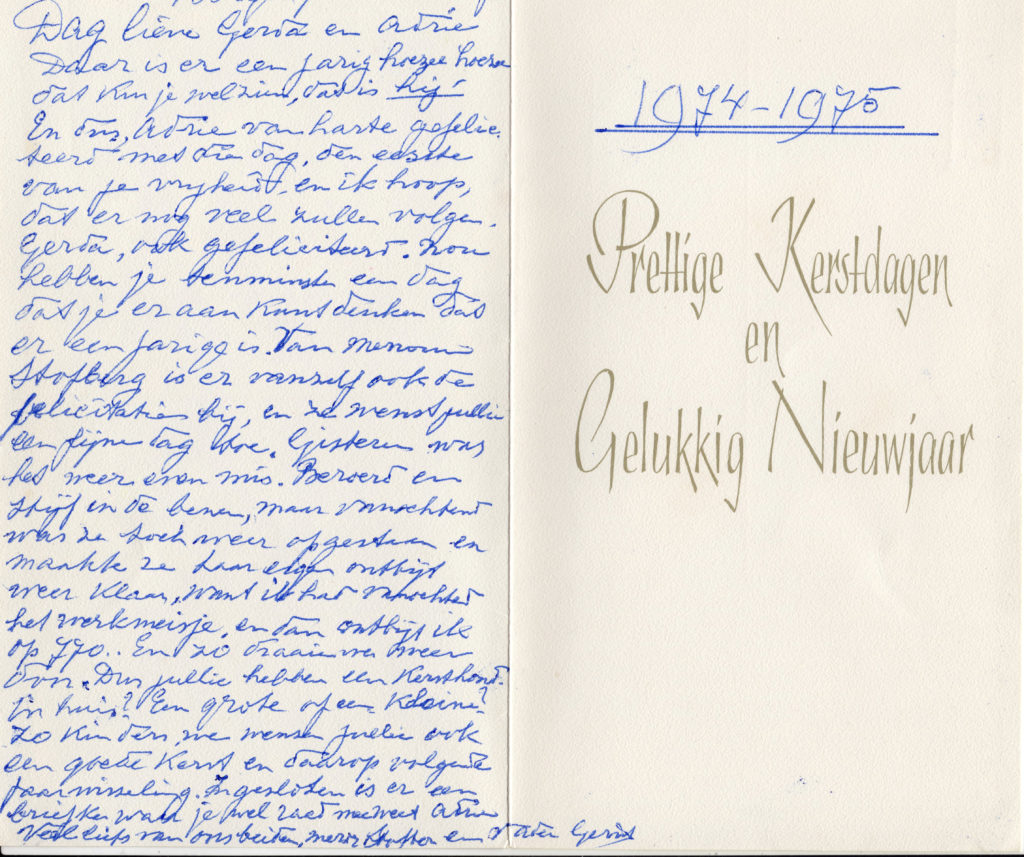 Dag lieve Gerda en Adrie
Daar is er een jarig hoezee hoezee
dat kun je wel zien, dat is hij!
En dus, Adrie van harte gefelici-
teerd met die dag, den eerste
van je vrijheid, en ik hoop,
dat er nog veel zullen volgen.
Gerda, ook gefeliciteerd. Nou
hebben je tenminste een dag
dat je er aan kunt denken dat
er een jarige is. Van mevrouw
Stofberg is er vanzelf ook de
felicitatie bij, en ze wenst jullie
een fijne dag toe. Gisteren was
het weer even mis. Beroerd en
stijf in de benen, maar vanochtend
was ze toch weer opgestaan en
maakte ze haar eigen ontbijt
weer klaar, want ik had vanochtend
het werkmeisje, en dan ontbijt ik
op 770.. En zo draaien we weer
door. Dus jullie hebben een Kersthond
in huis? Een grote of een kleine?
Zo kinders, we wensen jullie ook
een goede Kerst en daarop volgende
Jaarwisseling. Ingesloten is er een
briefke waar je wel raad mee weet Adrie
Veel liefs van ons beiden, mevr. en Vader Gerrit
1974-1975
Prettige Kerstdagen
en
Gelukkig Nieuwjaar